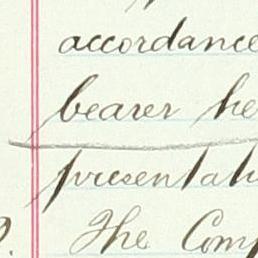 accordance
bearer he
presentati
The Comp